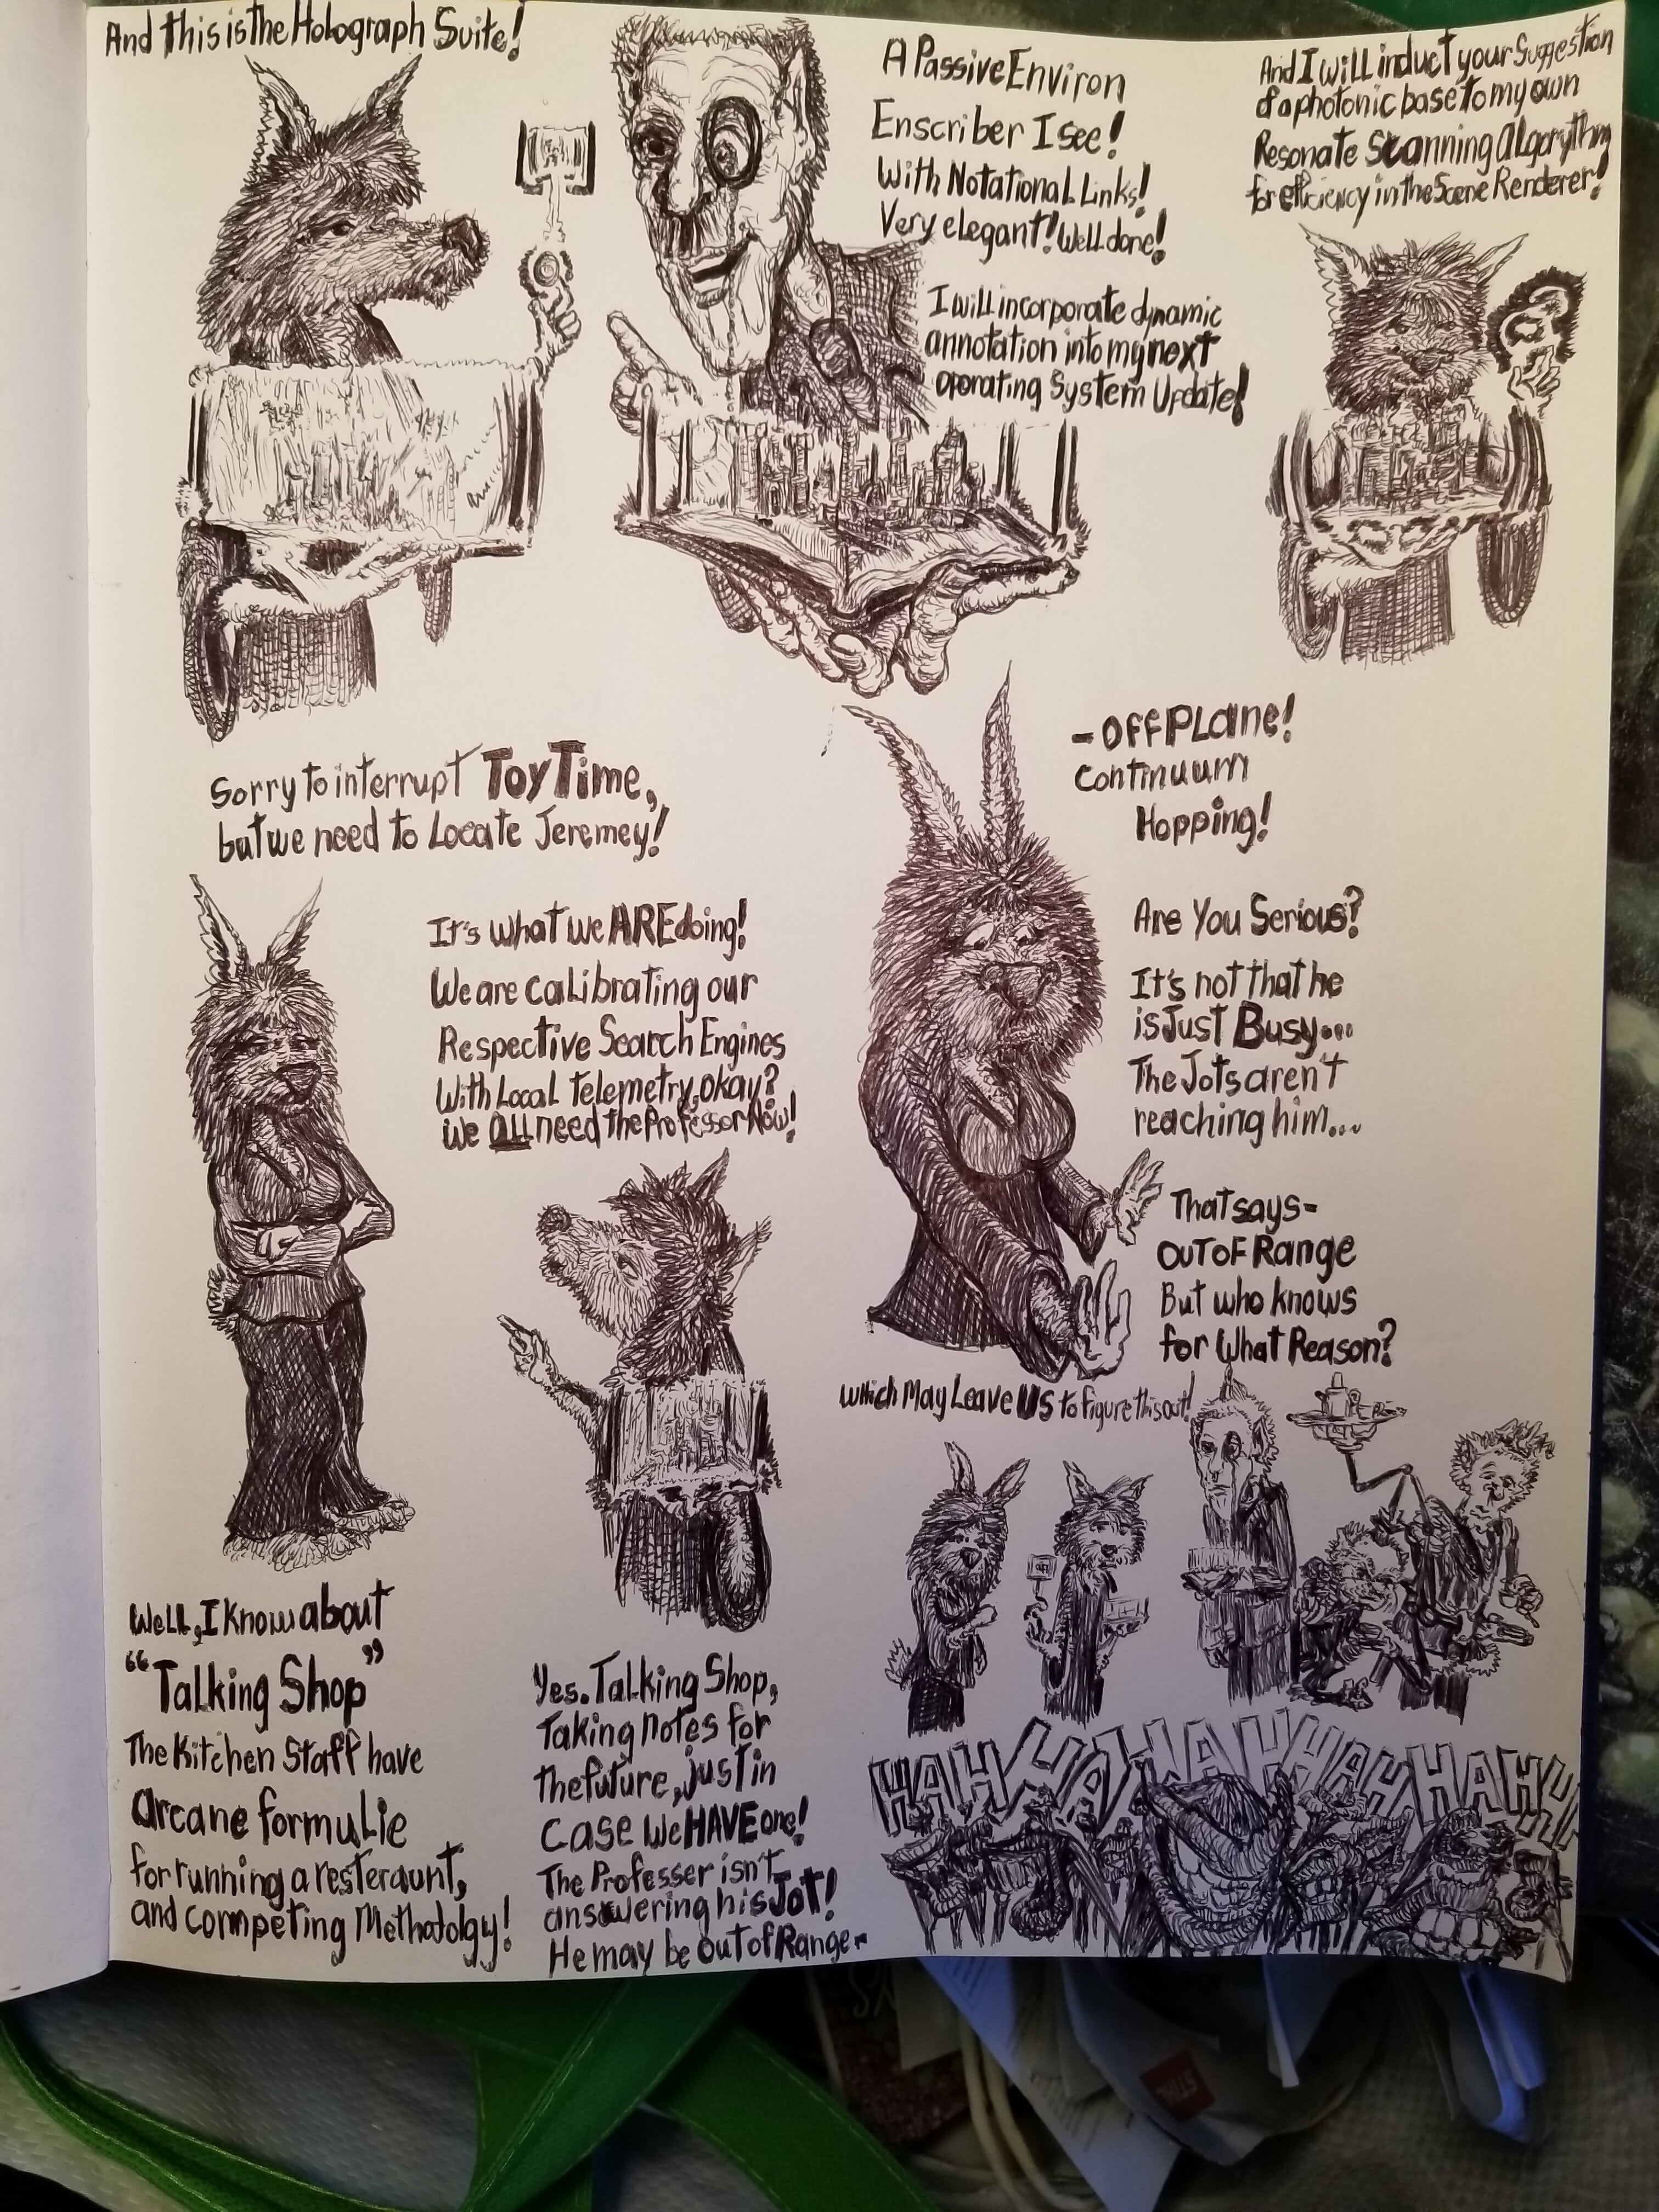 And this is the Holograph Suite!
A Passive Environ
Enscriber I see!
With Notational Links!
Very elegant! Well done!
I will incorporate dynamic
annotation into my next
operating System Update!
And I will induct your Suggestion
of a photonic base to my own
Resonate Scanning Algorythm
for efficiency in the Scene Renderer!
Sorry to interrupt Toy Time,
but we need to Locate Jeremey!
It's what we ARE doing!
We are calibrating our
Respective Search Engines
With Local telemetry, okay?
We ALL need the Professor Now!
Well, I know about
"Talking Shop"
The Kitchen Staff have
arcane formulie
for running a resteraunt,
and competing Methodolgy!
Yes. Talking Shop,
Taking notes for
the future, just in
Case We HAVE one!
The Professer isn't
answering his Jot!
He may be out of Range-
-OFF PLane!
Continuum
Hopping!
Are You Serious?
It's not that he
is Just Busy...
The Jots aren't
reaching him...
That says-
OUT OF Range
But who knows
for What Reason?
Which May Leave US to figure this out!
HAH HA HAH HAH HAH
STIHL